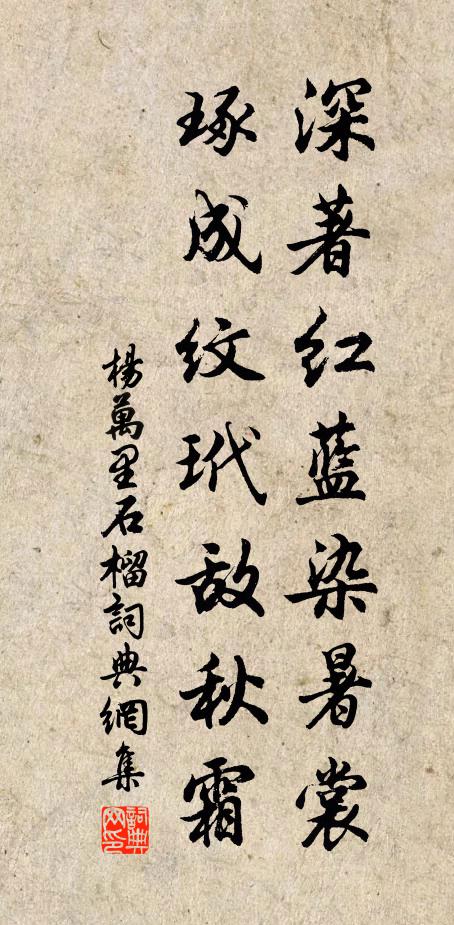 深著红蓝染暑裳
琢成纹玳敌秋霜
楊萬里石榴詞典網集
詞典網印